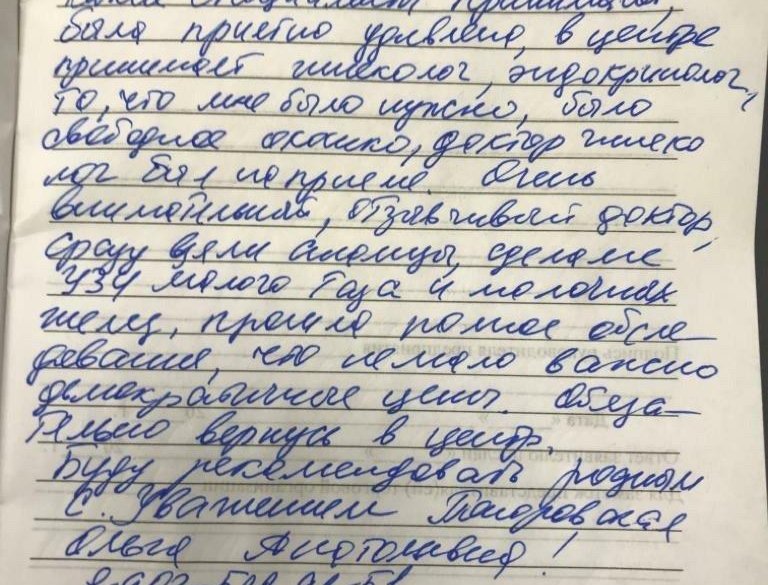 была приятно удивлена, в центре
принимает гинеколог, эндокринолог,
то, что мне было нужно, было
свободное окошко, доктор гинеко
лог был на приеме. Очень
внимательный, отзывчивый доктор,
сразу взяли анализы, сделали
УЗИ малого таза и молочных
желез, прошла полное обсле-
дование, что немало важно
демократичные цены. Обяза-
тельно вернусь в центр,
Буду рекомендовать родным
С. Уважением
Ольга Анатольевна!